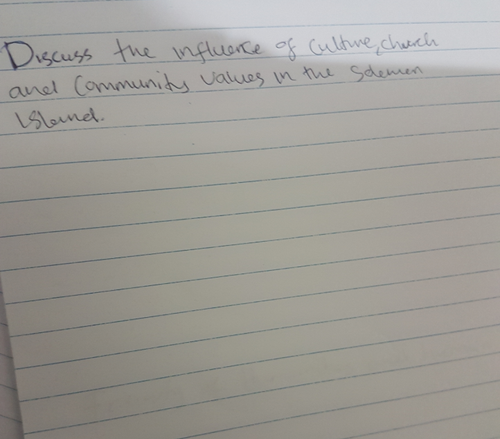 Discuss the influence of Culture, church
and Community values in the Solemon
Island.